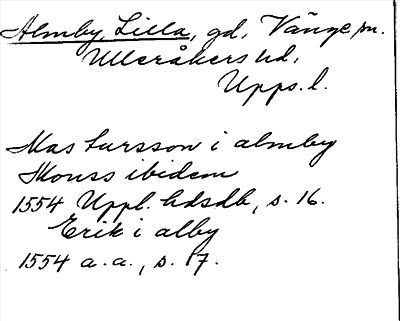 Almby, Lilla, gd, Vänge sn.
Ulleråkers hd,
Upps. l.
Mas larsson i almby
Monss ibidem
1554 Uppl. hdsdb, s. 16.
Erik i alby
1554 a.a., s. 17.